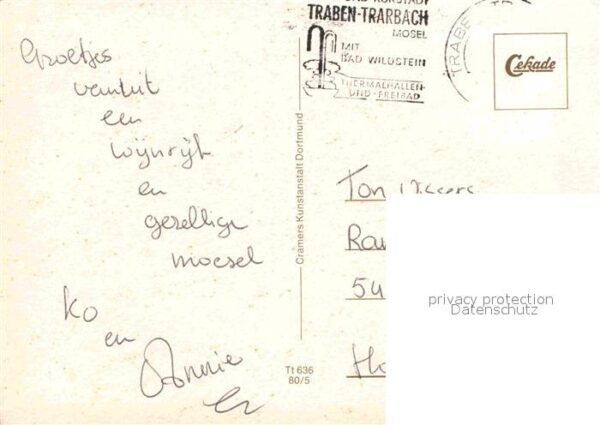 Groetjes
vanuit
een
wijnrijk
en
gezellige
moesel
Ko
en
Annie
UND KURSTADT
TRABEN-TRARBACH
MOSEL
MIT
BAD WILDSTEIN
THERMALHALLEN-
UND-FREIBAD
TRABE
Cekade
Cramers Kunstanstalt Dortmund
Tt 636
80/5
Ton Vissers
Ra
54
Ho
privacy protection
Datenschutz